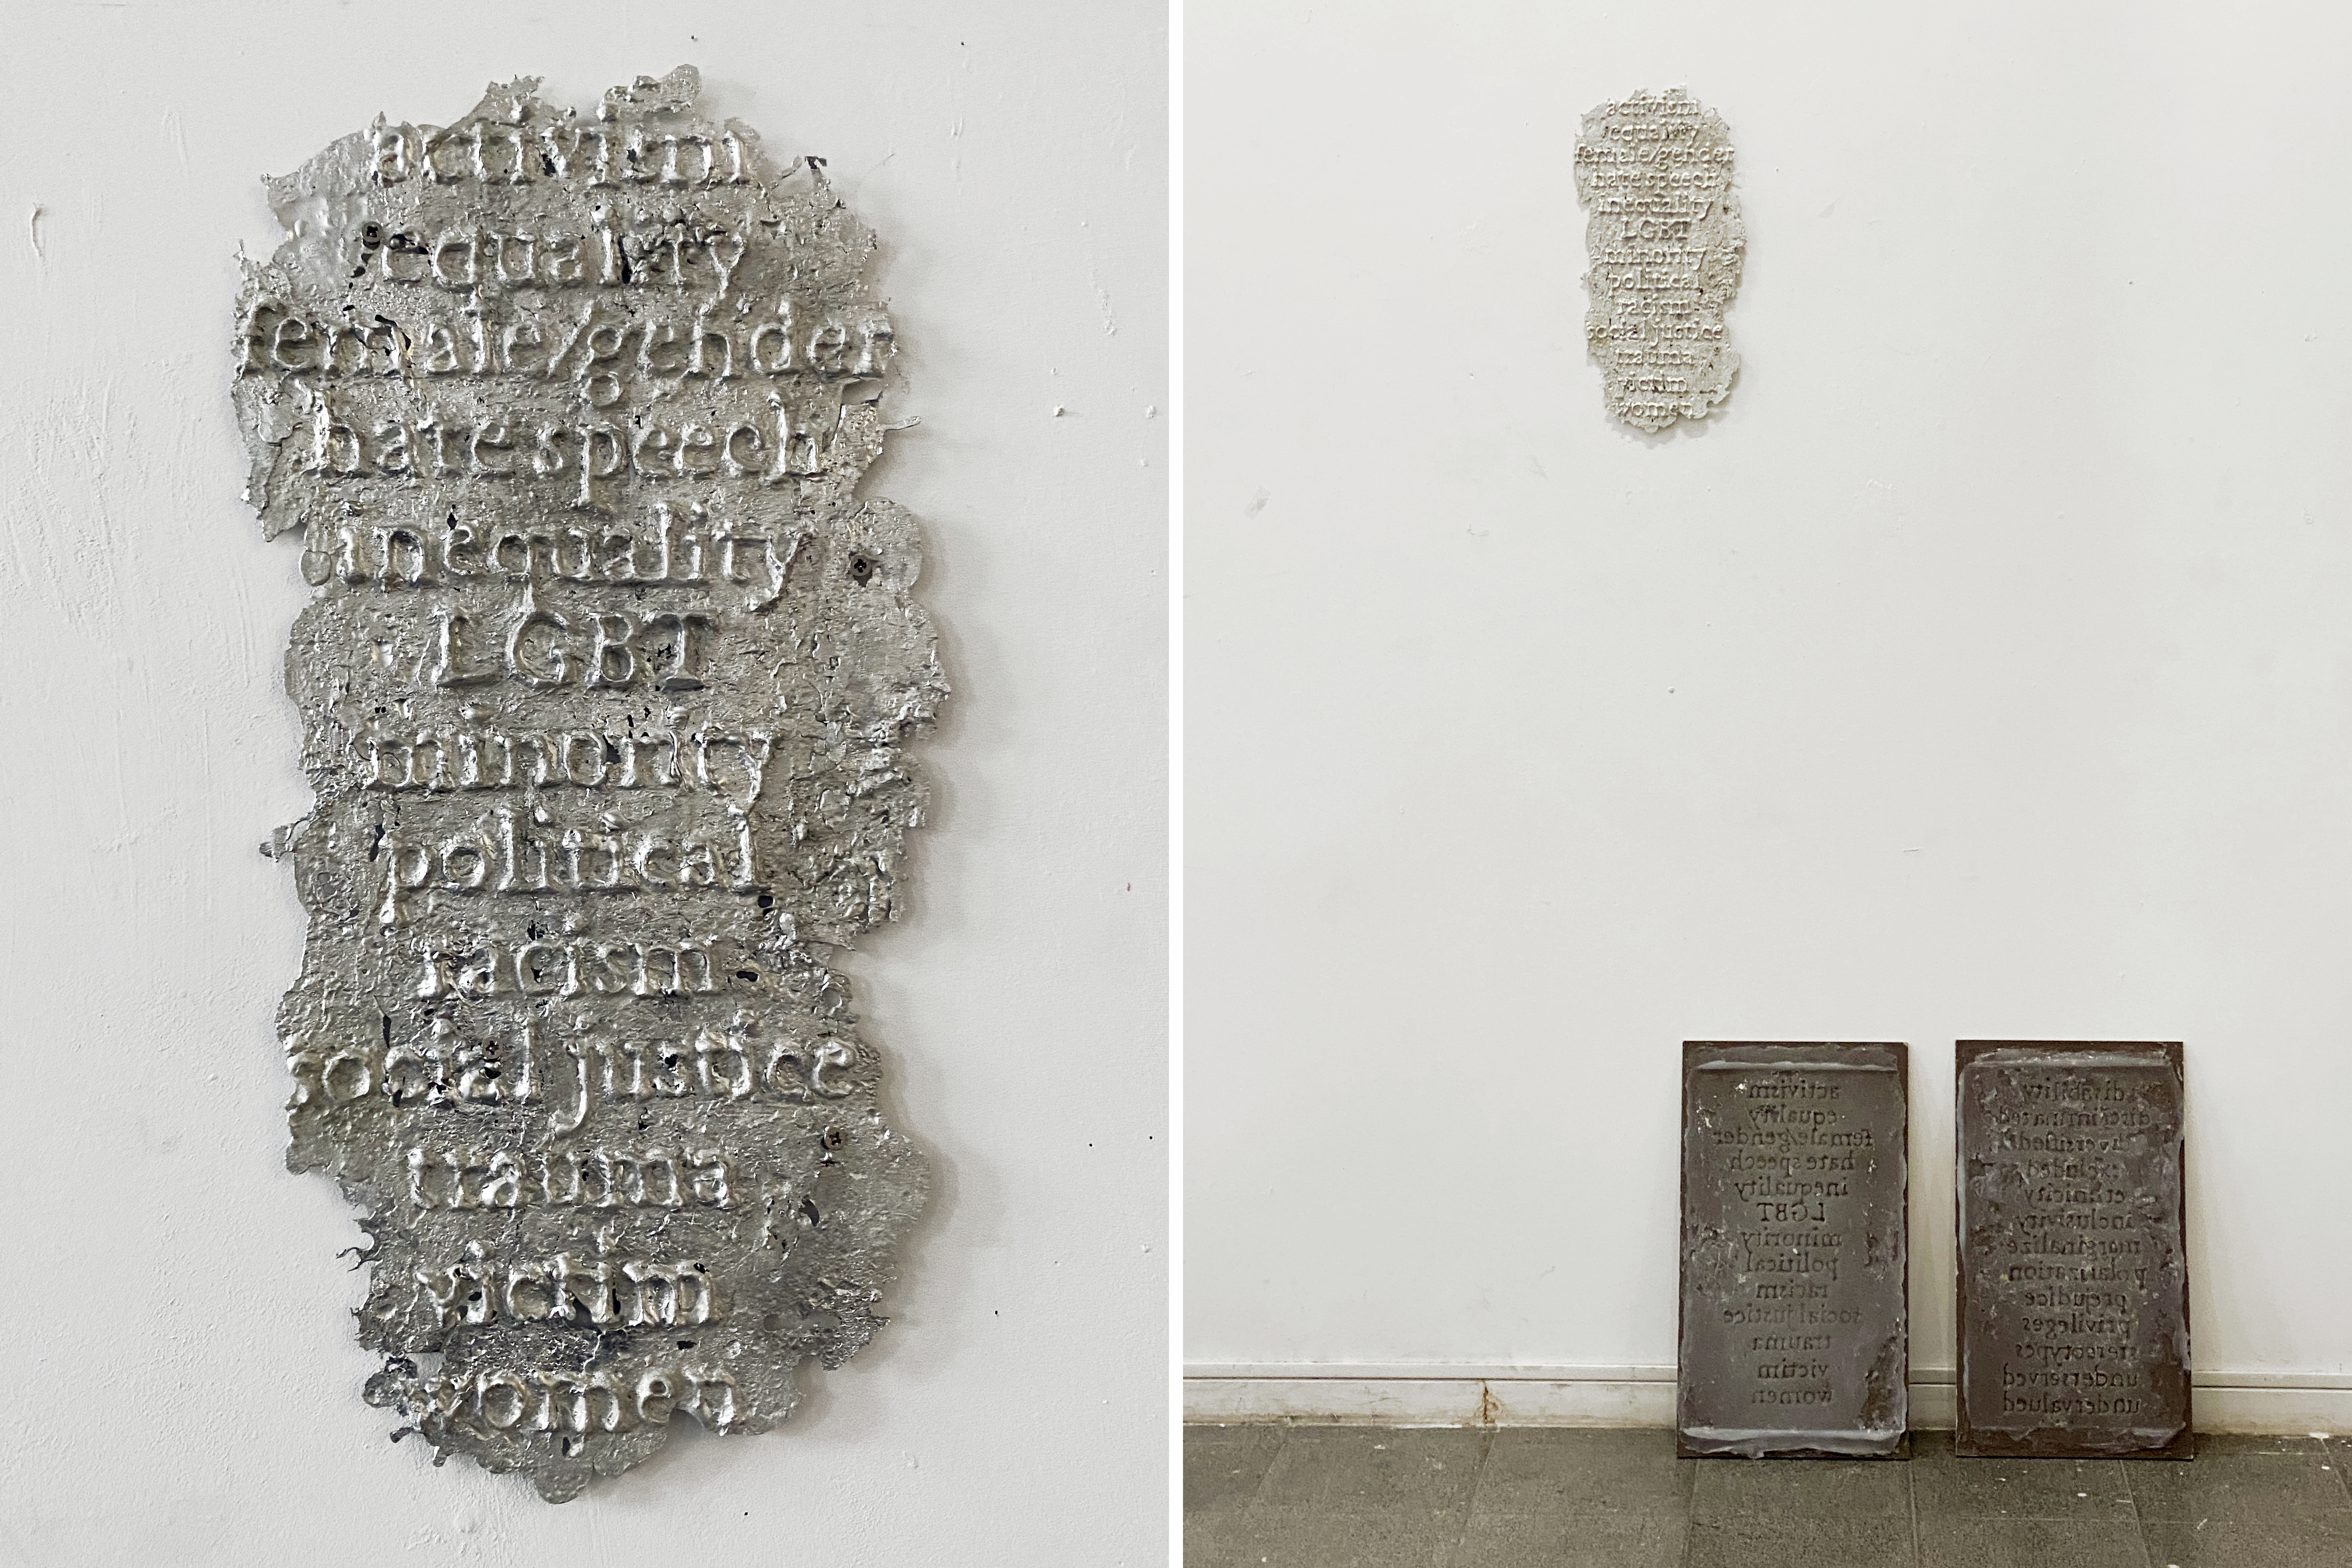 activism
equality
female/gender
hate speech
inequality
LGBT
minority
political
racism
social justice
trauma
victim
women
activism
equality
female/gender
hate speech
inequality
LGBT
minority
political
racism
social justice
trauma
victim
women
activism
equality
female/gender
hate speech
inequality
LGBT
minority
political
racism
social justice
trauma
victim
women
disability
discriminated
diversified
excluded
ethnicity
inclusivity
marginalize
polarization
prejudice
privileges
stereotypes
underserved
undervalued